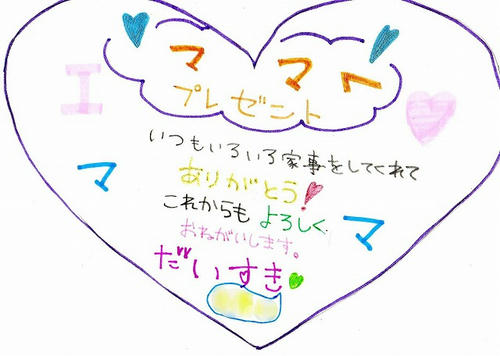 ママへ
プレゼント
I
いついもいろいろ家事をしてくれて
ありがとう!
これからもよろしく
おねがいします。
ママ
だいすき